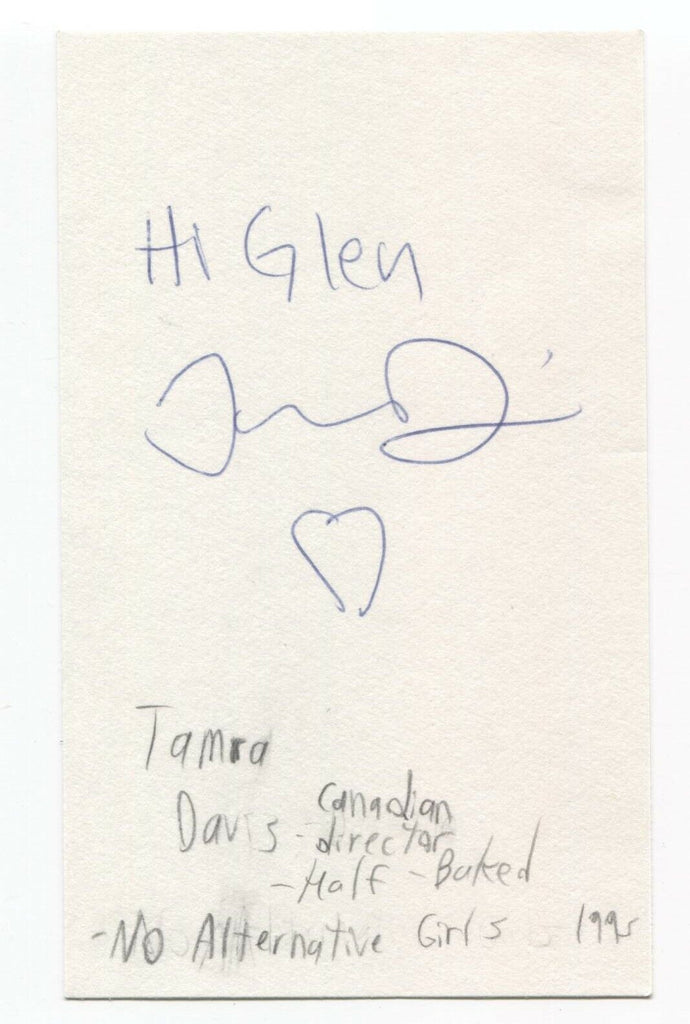 Hi Glen
Tamra
Davis - Canadian
director
- Half - Baked
- No Alternative Girls - 1995